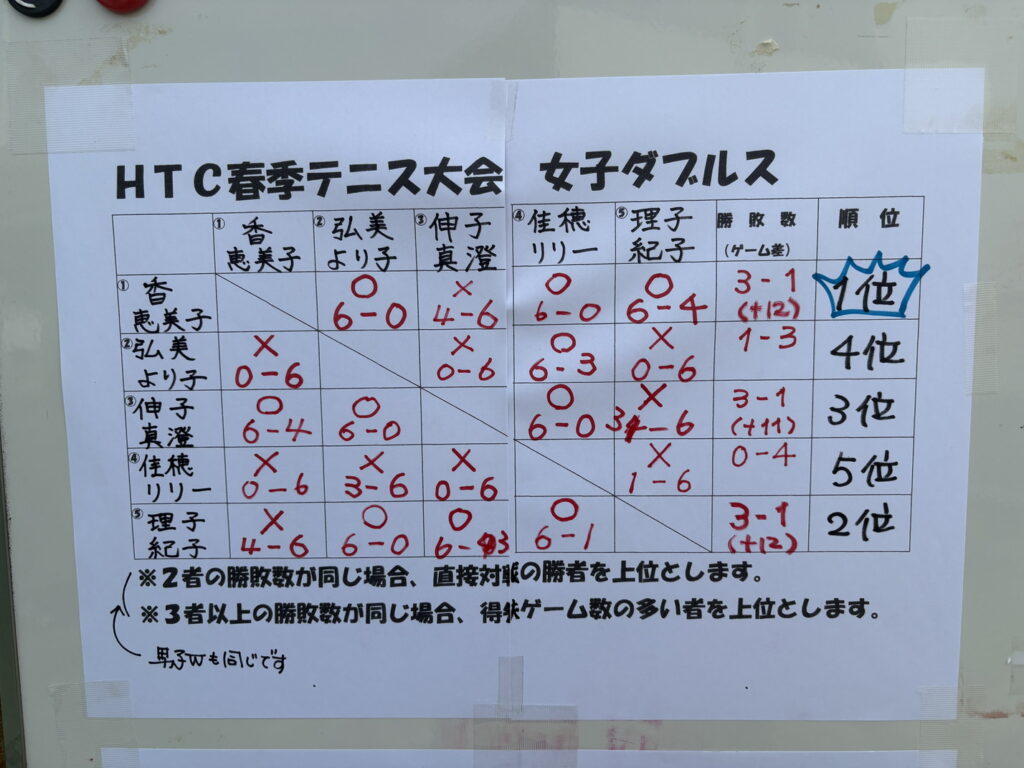 HTC春季テニス大会 女子ダブルス
① 香 恵美子 ② 弘美 より子 ③ 伸子 真澄 ④ 佳穂 リリー ⑤ 理子 紀子 勝敗数 (ゲーム差) 順位
① 香 恵美子 ○ 6-0 × 4-6 ○ 6-0 ○ 6-4 3-1 (+12) 1位
② 弘美 より子 × 0-6 × 0-6 ○ 6-3 × 0-6 1-3 4位
③ 伸子 真澄 ○ 6-4 ○ 6-0 ○ 6-0 × 3-6 3-1 (+11) 3位
④ 佳穂 リリー × 0-6 × 3-6 × 0-6 × 1-6 0-4 5位
⑤ 理子 紀子 × 4-6 ○ 6-0 ○ 6-3 ○ 6-1 3-1 (+12) 2位
※2者の勝敗数が同じ場合、直接対戦の勝者を上位とします。
※3者以上の勝敗数が同じ場合、得失ゲーム数の多い者を上位とします。
男子Wも同じです